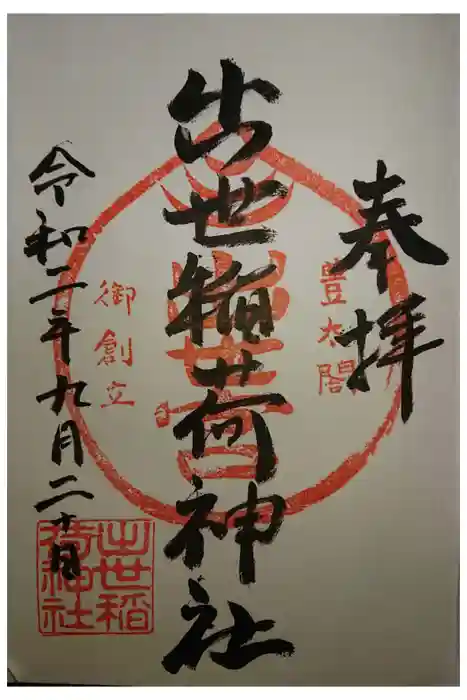 奉拝
豊太閤
出世稲荷神社
御創立
令和二年九月二十日
出世稲
荷神社